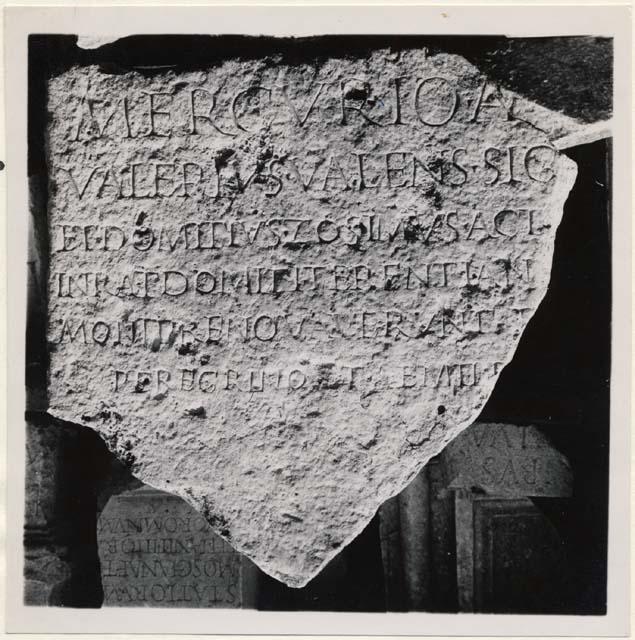 MERCVRIO A
VALERIVS·VALENS·SIG
ET·DOMITIVS ZOSIMVS ACT
IN RAT DOMITI TERENTIAN
RENOVAVERVNT
PEREGRINO ET AEMILI
RVS
STATIORVM